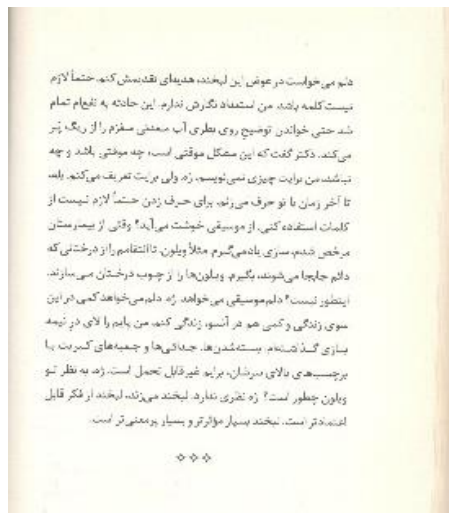 دلم می‌خواست در عوض این لبخند، هدیه‌ای تقدیمش کنم. حتماً لازم
نیست کلمه باشد. من استعداد نگارش ندارم. این حادثه به نفع‌ام تمام
شد حتی خواندن توضیح روی بطری آب معدنی مغزم را از ریگ پُر
می‌کند. دکتر گفت که این مشکل موقتی است، چه موقتی باشد و چه
نباشد، من برایت چیزی نمی‌نویسم. ژه، ولی برایت تعریف می‌کنم. بله،
تا آخر زمان با تو حرف می‌زنم. برای حرف زدن حتماً لازم نیست از
کلمات استفاده کنی. از موسیقی خوشت می‌آید؟ وقتی از بیمارستان
مرخص شدم، سازی یاد می‌گیرم. مثلاً ویلون. تا انتقامم را از درختانی که
دائم جابجا می‌شوند، بگیرم. ویلون‌ها را از چوب درختان می‌سازند.
اینطور نیست؟ دلم موسیقی می‌خواهد. ژه. دلم می‌خواهد کمی در این
سوی زندگی و کمی هم در آنسو، زندگی کنم. من پایم را لای در نیمه
بازی گذاشته‌ام. بسته‌شدن‌ها، جدائی‌ها و جعبه‌های کبریت با
برچسب‌های بالای سرشان، برایم غیرقابل تحمل است. ژه، به نظر تو
ویلون چطور است؟ ژه نظری ندارد. لبخند می‌زند، لبخند از فکر قابل
اعتمادتر است. لبخند بسیار مؤثرتر و بسیار پرمعنی‌تر است.